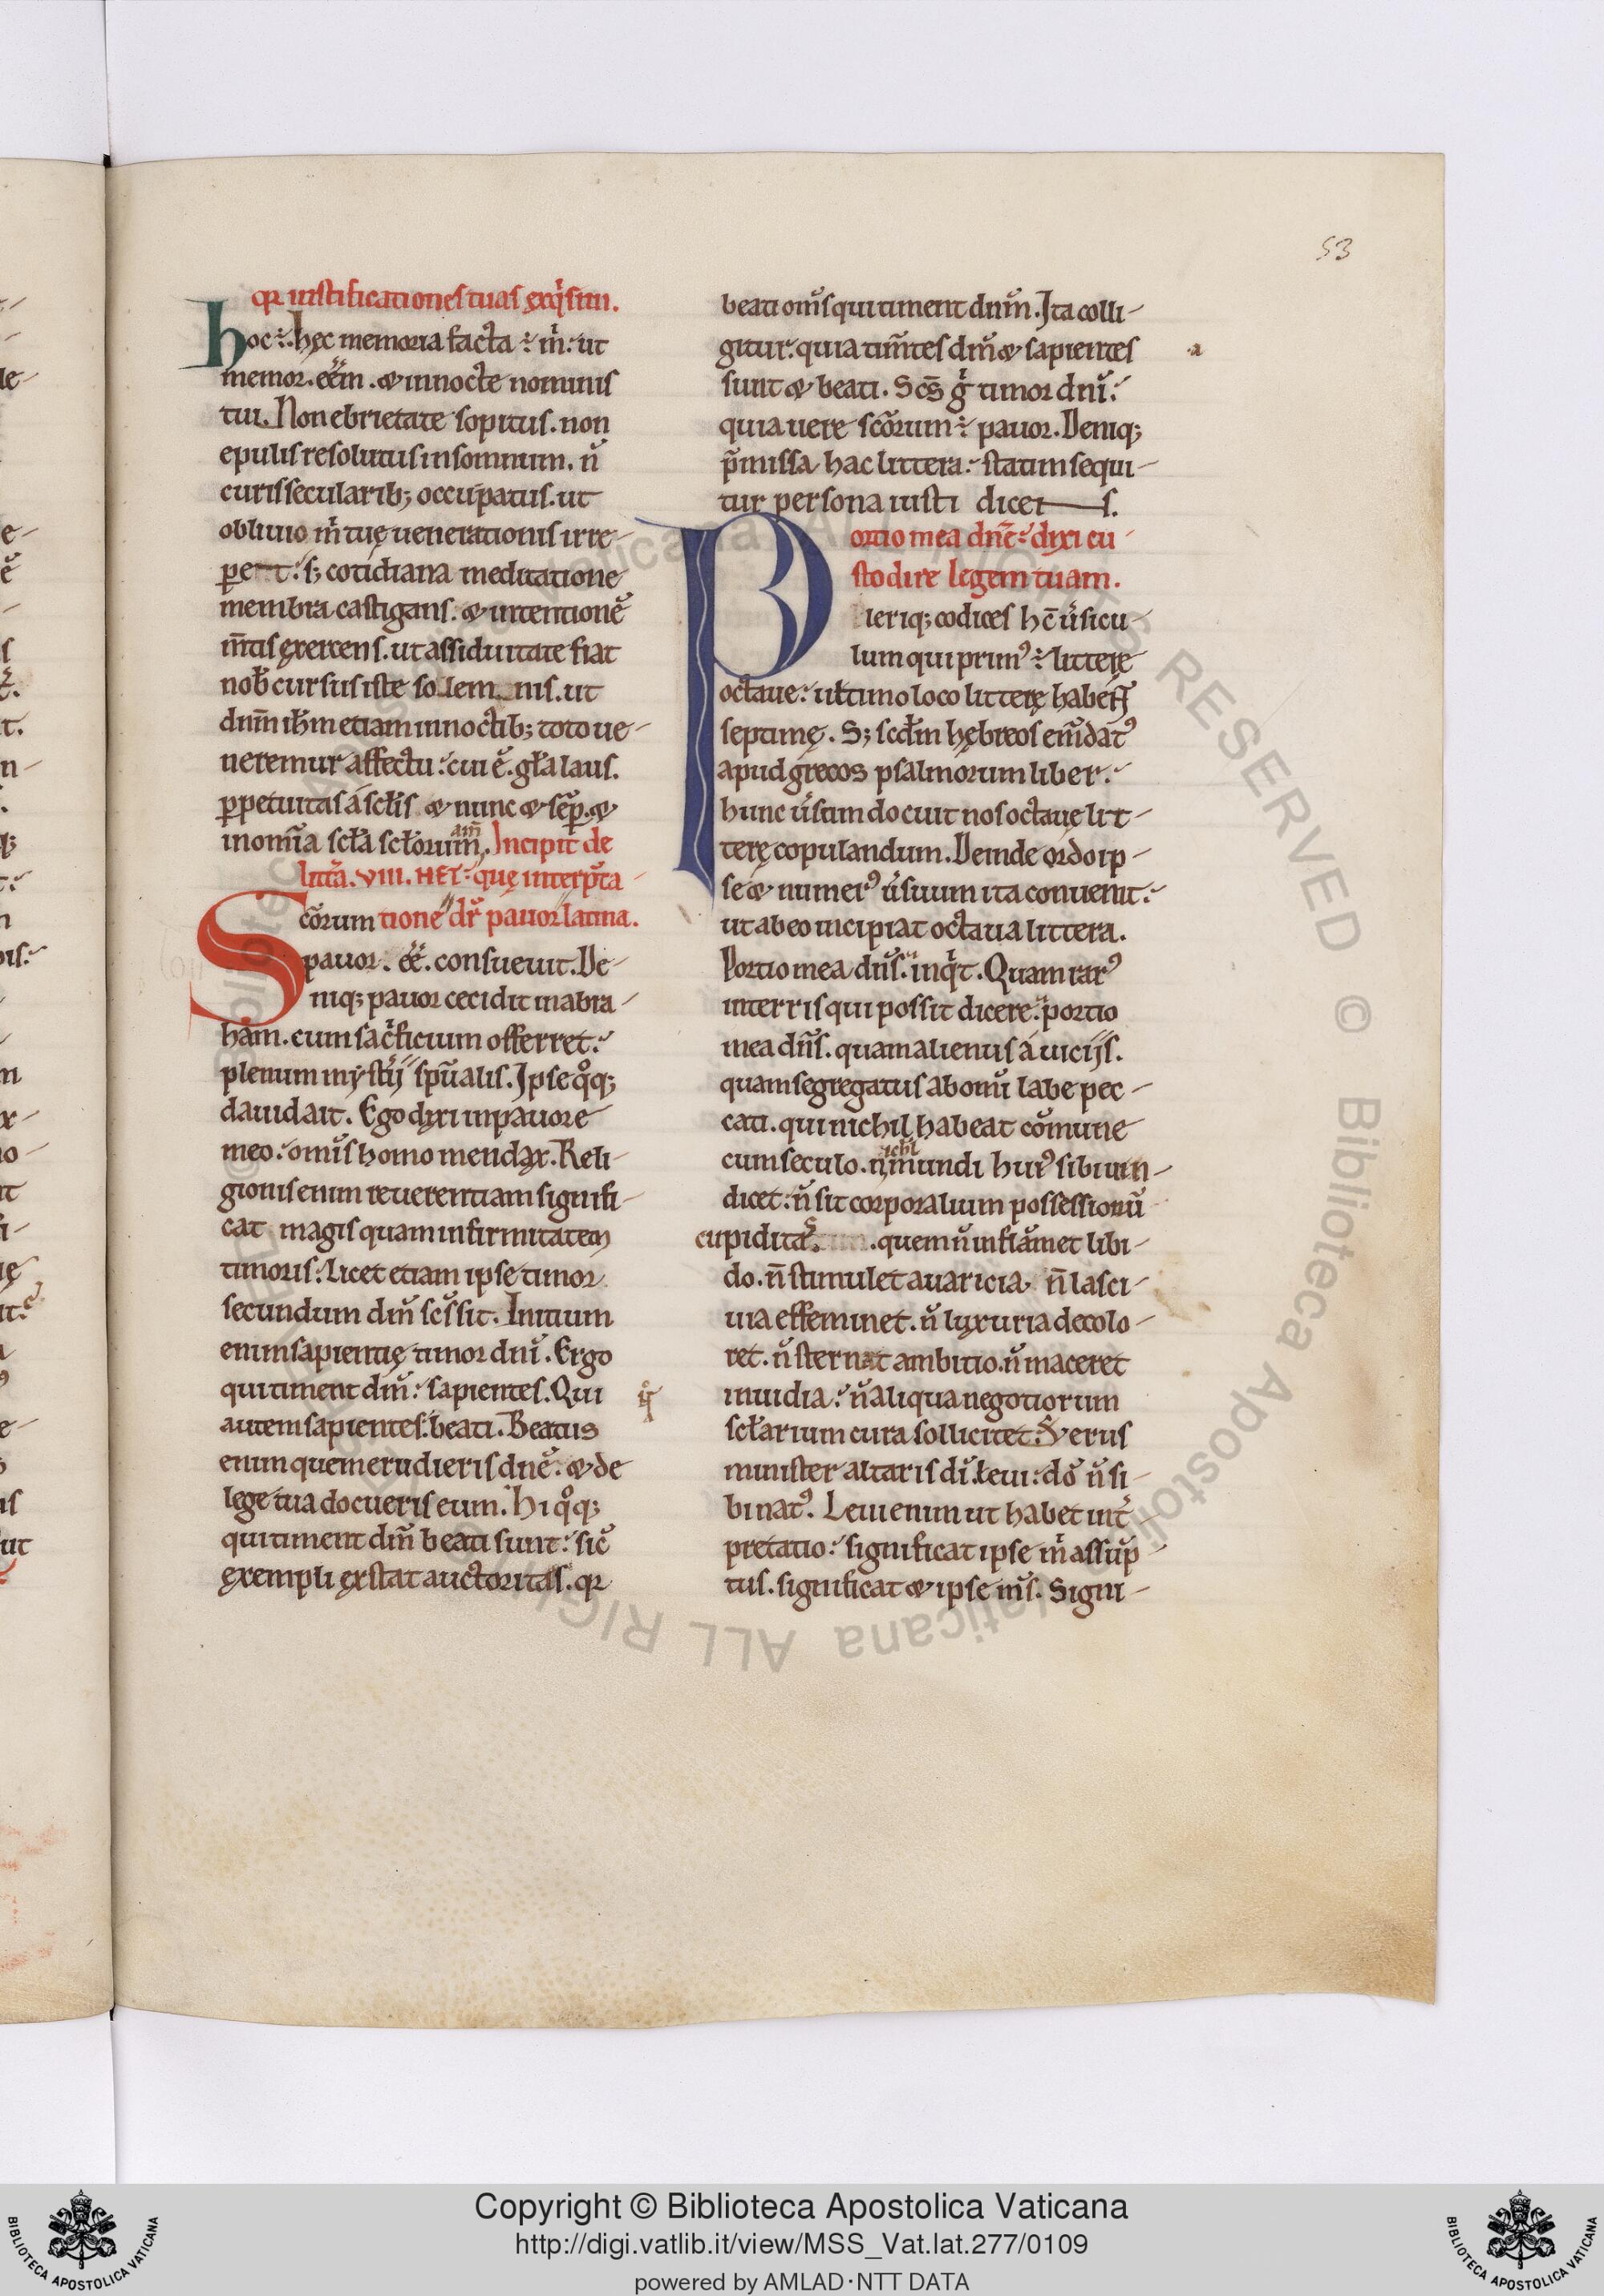 53
qr iustificationes tuas exq̍siui.
hoc ÷. hęc memoria facta ÷ m̍. ut
memor. eēm. & in nocte nominis
tui. Non ebrietate sopitus. non
epulis resolutus in somnum. n̄
curis secularib; occupatus. ut
obliuio m̍ tuę uenerationis irre-
pe t. s; cotidiana meditatione
membra castigans. & intentionē
m̄tis exercens. ut assiduitate fiat
nob̄ cursus iste sollem nis. ut
dn̄m ih̄m etiam in noctib; toto ue-
neremur affectu. cui ē. gl̄a laus.
ꝑpetuitas á scl̄is & nunc & sēꝑ. &
in om̄ia scl̄a scl̄orum. am̄ Incipit de
litt̄a. VIII. HET. quę interp̄ta-
Sc̄orum tione dr̄ pauor latina.
pauor. eē. consueuit. De-
niq; pauor cecidit in abra-
ham. cum sac̍ficium offerret.
plenum mẏst̍ij sp̄ualis. Ipse qͦq;
dauid ait. Ego dixi in pauore
meo. om̄is homo mendax. Reli-
gionis enim reuerentiam signifi-
cat magis quam infirmitatem
timoris. Licet etiam ipse timor
secundum dm̄ sc̄s sit. Initium
enim sapientię timor dn̄i. Ergo
qui timent dm̄. sapientes. Qui
autem sapientes. beati. Beatus
enim quem erudieris dn̄e. & de
lege tua docueris eum. Hi qͦq;
qui timent dm̄ beati sunt. sic̄
exempli exstat auctoritas. qr
beati om̄s qui timent dn̄m. Ita colli-
gitur. quia tim̄tes dm̄ & sapientes
sunt & beati. Sc̄s g̍ timor dn̄i.
quia uere sc̄orum ÷ pauor. Deniq;
p̄missa hac littera. statim sequi-
tur persona iusti dicei s.
Portio mea dn̄e. dixi cu
stodire legem tuam.
leriq; codices hc̄ u̍sicu-
lum qui prim᾽ ÷ litterę
octaue. ultimo loco litterę habent
septimę. S; scd̄m hębreos em̄dat᾽
apud grecos psalmorum liber.
hunc u̍sum docuit nos octaue lit-
terę copulandum. Deinde ordo ip-
se & numer᾽ u̍suum ita conuenit.
ut ab eo incipiat octaua littera.
Portio mea dn̄s. inq̍t. Quam rar᾽
in terris qui possit dicere. portio
mea dn̄s. quam alienus á uicijs.
quam segregatus ab om̄i labe pec-
cati. qui nichil habeat cōmune
cum seculo. n ichil mundi hui᾽ sibi uin-
dicet. n̄ sit corporalium possessionū
cupidita . quem n̄ inflāmet libi-
do. n̄ stimulet auaricia, n̄ lasci-
uia effeminet. n̄ luxuria decolo-
ret. n̄ sternat ambitio. n̄ maceret
inuidia. n̄ aliqua negotiorum
scl̄arium cura sollicitet. S; uerus
minister altaris dī. leui. dō n̄ si-
bi nat᾽. Leui enim ut habet int̄-
pretatio. significat ipse m̍ assūp-
tus. significat & ipse m̄s. Signi-
Copyright © Biblioteca Apostolica Vaticana
http://digi.vatlib.it/view/MSS_Vat.lat.277/0109
powered by AMLAD·NTT DATA
BIBLIOTECA APOSTOLICA VATICANA
BIBLIOTECA APOSTOLICA VATICANA